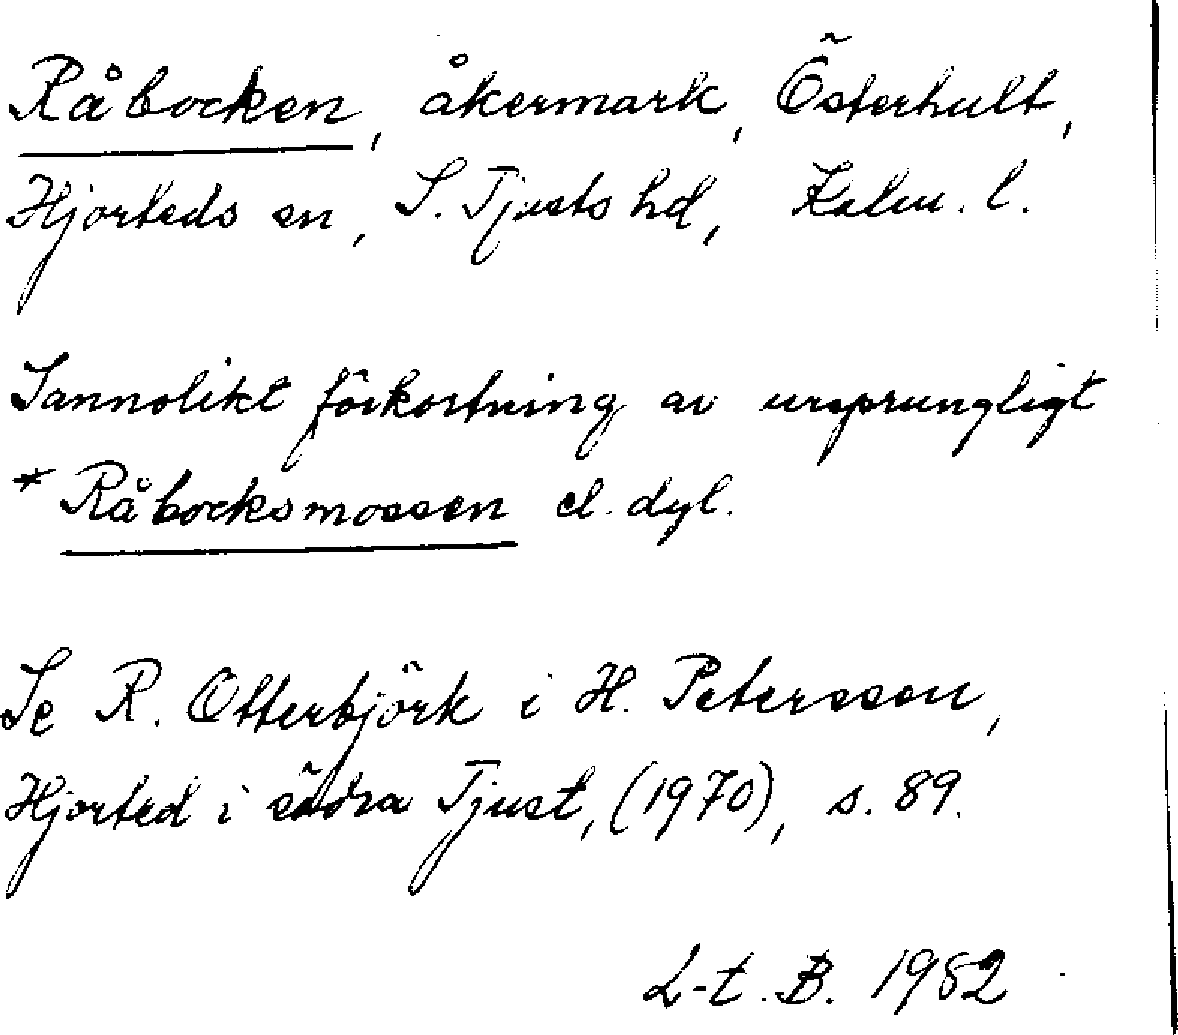 Råbocken, åkermark, Österhult,
Hjorteds sn, S. Tjusts hd, Kalm. l.
Sannolikt förkortning av ursprungligt
*Råbocksmossen el. dyl.
Se R. Otterbjörk i H. Petersson,
Hjorted i södra Tjust, (1970), s. 89.
L-t. B. 1982